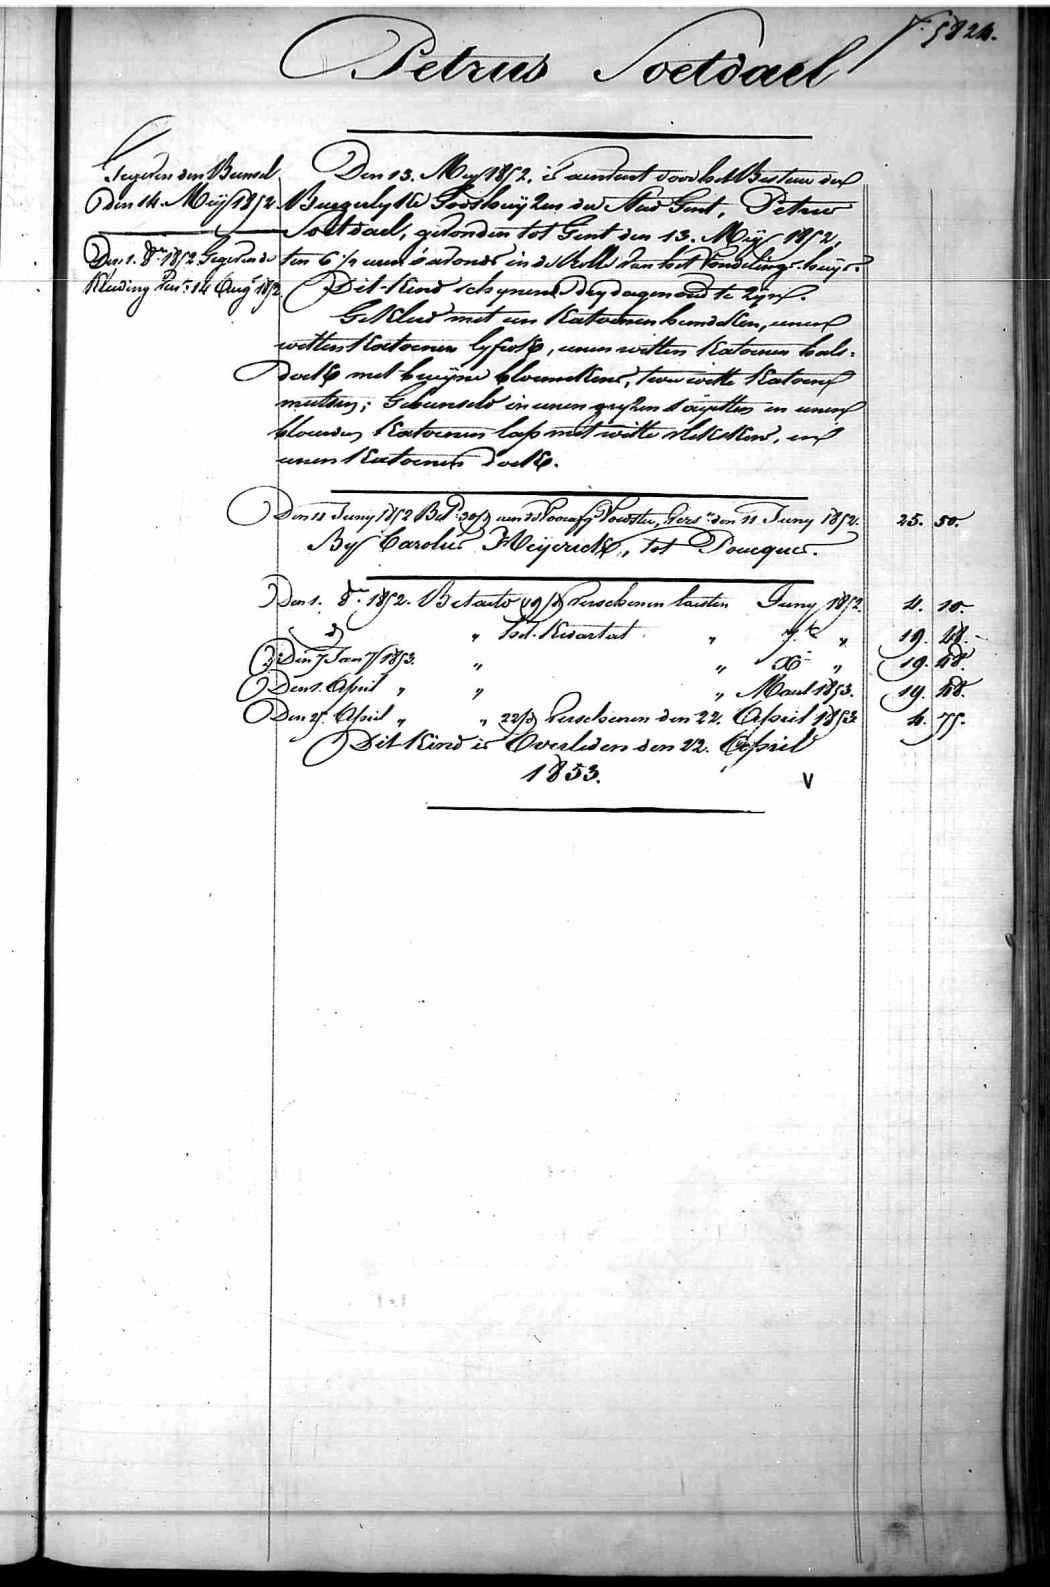 5824.
Petrus Soetdael
Gegeven den Bunsel
Den 14. Meij 1852
Den 1. 8.re 1852 Gegeven de
Kleeding Vers.n 14 Aug.t 1852
Den 13. Meij 1852, is aenveert door het Bestuer der
Burgerlyke Godshuijzen der Stad Gent, Petrus
Soetdael, gevonden tot Gent den 13. Meij 1852,
ten 6 1/2 uren s'avonds in de Rolle van het Vondelings-huijs.
Dit Kind schynende dry dagen oud te zyn.
Gekleed met een Katoenen hemdeken, eenen
witten Katoenen lyfrok, eenen witten Katoenen hals-
doek met bruijne bloemekens, twee witte Katoene
mutsen; Gebunseld in eenen gryzen sayetten en eenen
blauwen Katoenen lap met witte plekskens, en
eenen Katoenen doek.
Den 11 Juny 1852 Bet.d 30/d aen de Voorafg Voedster, vers.n den 11 Juny 1852. 25. 50.
By Carolus Heijerick, tot Poucques.
Den 1. 8.re 1852. Betaeld 19/d verschenen lasten Juny 1852. 4. 10.
d.o " het Kwartael " 7.bre " 19. 48.
Den 7 Jan.y 1853. " " X.re " 19. 48.
Den 1. April " " " Maert 1853. 19. 48.
Den 25. April " " 22/d verschenen den 22. April 1853 4. 75.
Dit Kind is Overleden den 22. April
1853. V